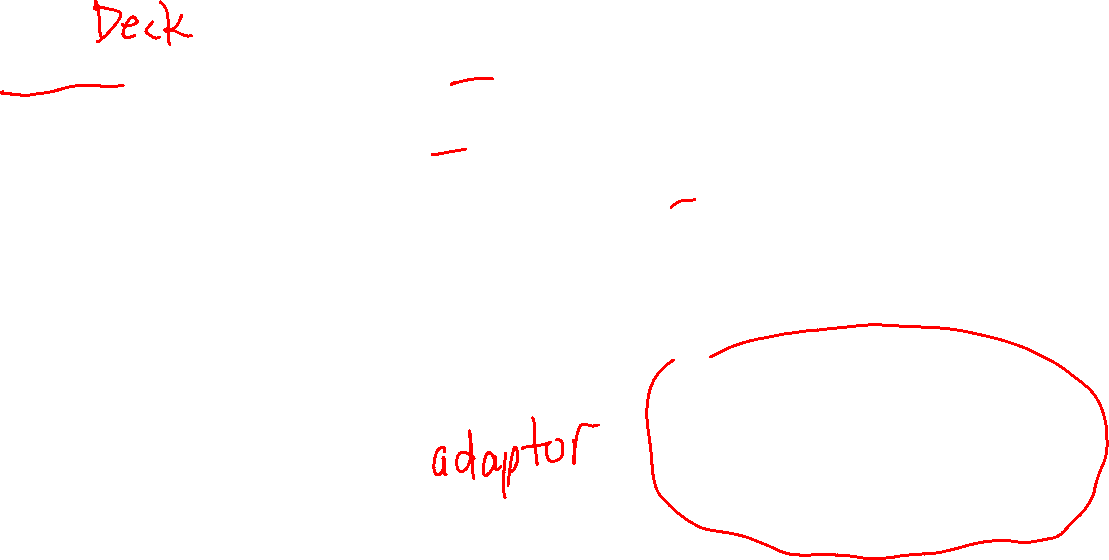 Deck
adaptor